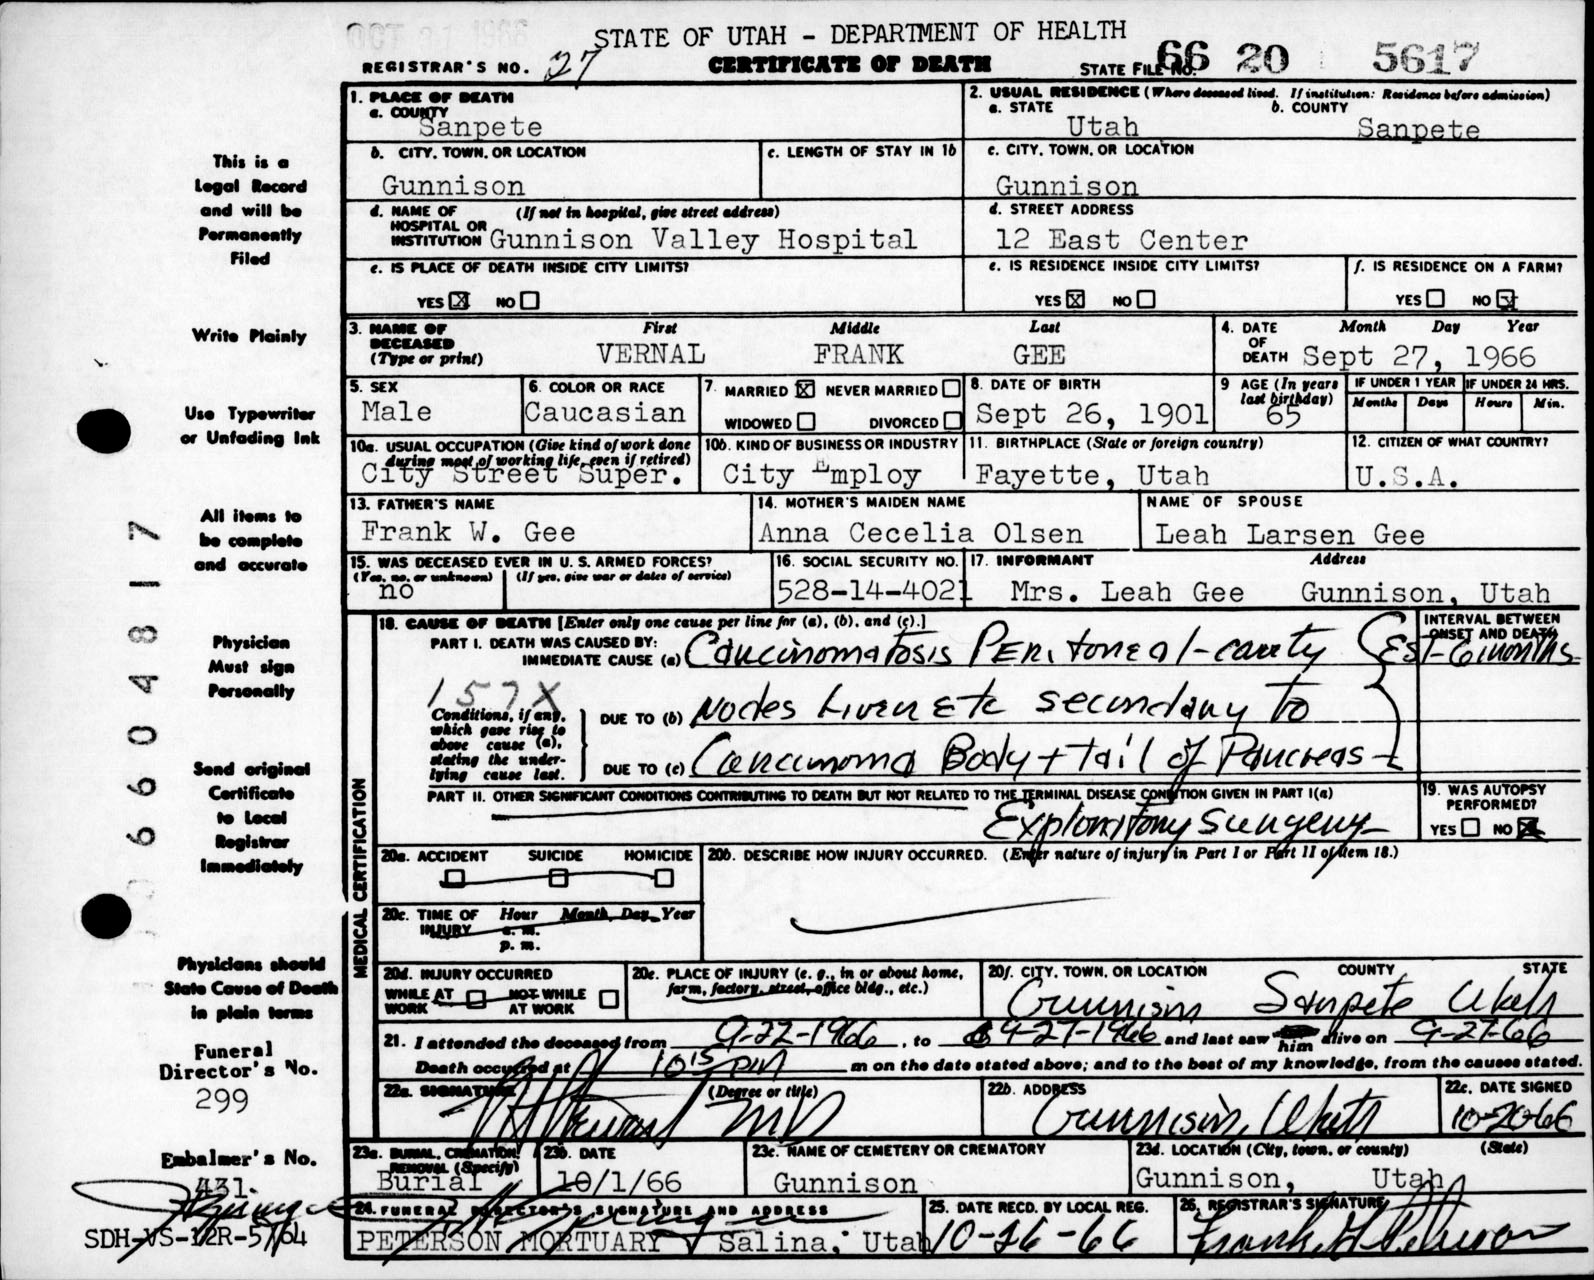 OCT 31 1966
STATE OF UTAH - DEPARTMENT OF HEALTH
REGISTRAR'S NO. 27 CERTIFICATE OF DEATH STATE FILE NO. 66 20 5617
1. PLACE OF DEATH
a. COUNTY
Sanpete
2. USUAL RESIDENCE (Where deceased lived. If institution: Residence before admission)
a. STATE b. COUNTY
Utah Sanpete
b. CITY, TOWN, OR LOCATION
Gunnison
c. LENGTH OF STAY IN 1b
c. CITY, TOWN, OR LOCATION
Gunnison
d. NAME OF (If not in hospital, give street address)
HOSPITAL OR
INSTITUTION Gunnison Valley Hospital
d. STREET ADDRESS
12 East Center
e. IS PLACE OF DEATH INSIDE CITY LIMITS?
YES ☒ NO ☐
e. IS RESIDENCE INSIDE CITY LIMITS?
YES ☒ NO ☐
f. IS RESIDENCE ON A FARM?
YES ☐ NO ☒
3. NAME OF First Middle Last
DECEASED
(Type or print) VERNAL FRANK GEE
4. DATE Month Day Year
OF
DEATH Sept 27, 1966
5. SEX
Male
6. COLOR OR RACE
Caucasian
7. MARRIED ☒ NEVER MARRIED ☐
WIDOWED ☐ DIVORCED ☐
8. DATE OF BIRTH
Sept 26, 1901
9 AGE (In years
last birthday)
65
IF UNDER 1 YEAR
Months Days
IF UNDER 24 HRS.
Hours Min.
10a. USUAL OCCUPATION (Give kind of work done
during most of working life, even if retired)
City Street Super.
10b. KIND OF BUSINESS OR INDUSTRY
City Employ
11. BIRTHPLACE (State or foreign country)
Fayette, Utah
12. CITIZEN OF WHAT COUNTRY?
U.S.A.
13. FATHER'S NAME
Frank W. Gee
14. MOTHER'S MAIDEN NAME
Anna Cecelia Olsen
NAME OF SPOUSE
Leah Larsen Gee
15. WAS DECEASED EVER IN U. S. ARMED FORCES?
(Yes, no, or unknown) (If yes, give war or dates of service)
no
16. SOCIAL SECURITY NO.
528-14-4021
17. INFORMANT Address
Mrs. Leah Gee Gunnison, Utah
MEDICAL CERTIFICATION
18. CAUSE OF DEATH [Enter only one cause per line for (a), (b), and (c).]
PART I. DEATH WAS CAUSED BY:
IMMEDIATE CAUSE (a) Carcinomatosis Peritoneal-cavity
INTERVAL BETWEEN
ONSET AND DEATH
Est-6 months
157X
Conditions, if any,
which gave rise to
above cause (a),
stating the under-
lying cause last.
DUE TO (b) nodes Liver Etc secondary to
DUE TO (c) Carcinoma Body + tail of Pancreas
PART II. OTHER SIGNIFICANT CONDITIONS CONTRIBUTING TO DEATH BUT NOT RELATED TO THE TERMINAL DISEASE CONDITION GIVEN IN PART I(a)
Exploratory Surgery
19. WAS AUTOPSY
PERFORMED?
YES ☐ NO ☒
20a. ACCIDENT SUICIDE HOMICIDE
☐ ☐ ☐
20b. DESCRIBE HOW INJURY OCCURRED. (Enter nature of injury in Part I or Part II of item 18.)
20c. TIME OF Hour Month, Day, Year
INJURY a. m.
p. m.
20d. INJURY OCCURRED
WHILE AT ☐ NOT WHILE ☐
WORK AT WORK
20e. PLACE OF INJURY (e. g., in or about home,
farm, factory, street, office bldg., etc.)
20f. CITY, TOWN, OR LOCATION COUNTY STATE
Gunnison Sanpete Utah
21. I attended the deceased from 9-22-1966, to 9-27-1966 and last saw him alive on 9-27-66
Death occurred at 10 15 pm m on the date stated above; and to the best of my knowledge, from the causes stated.
22a. SIGNATURE (Degree or title)
MD
22b. ADDRESS
Gunnison, Utah
22c. DATE SIGNED
10-20-66
23a. BURIAL, CREMATION,
REMOVAL (Specify)
Burial
23b. DATE
10/1/66
23c. NAME OF CEMETERY OR CREMATORY
Gunnison
23d. LOCATION (City, town, or county) (State)
Gunnison, Utah
24. FUNERAL DIRECTOR'S SIGNATURE AND ADDRESS
PETERSON MORTUARY Salina, Utah
25. DATE RECD. BY LOCAL REG.
10-26-66
26. REGISTRAR'S SIGNATURE
This is a
Legal Record
and will be
Permanently
Filed
Write Plainly
Use Typewriter
or Unfading Ink
All items to
be complete
and accurate
Physician
Must sign
Personally
Send original
Certificate
to Local
Registrar
Immediately
Physicians should
State Cause of Death
in plain terms
Funeral
Director's No.
299
Embalmer's No.
431
SDH-VS-12R-5/64
06604817